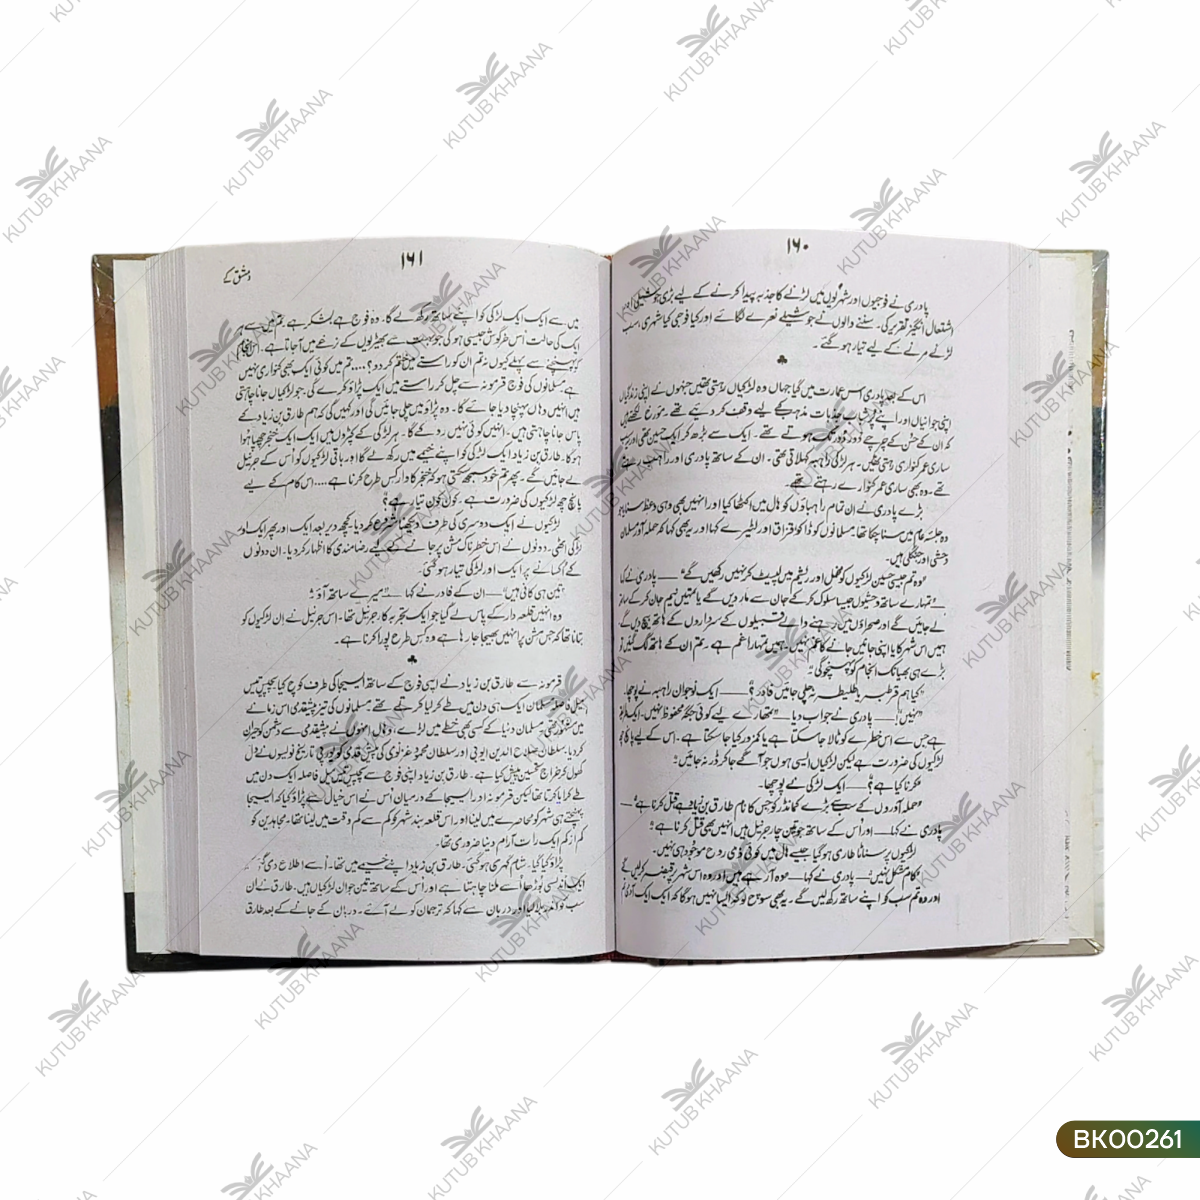 ۱۶۰
پادری نے فوجیوں اور شہریوں میں لڑنے کا جذبہ پیدا کرنے کے لیے بڑی جوشیلی اور
اشتعال انگیز تقریر کی۔ سننے والوں نے جوشیلے نعرے لگائے اور کیا فوجی کیا شہری، سب
لڑنے مرنے کے لیے تیار ہو گئے۔
اس کے بعد پادری اس عمارت میں گیا جہاں وہ لڑکیاں رہتی تھیں جنہوں نے اپنی زندگیاں
اپنی جوانیاں اور اپنے جذبات مذہب کے لیے وقف کر دیئے تھے۔ مورخ لکھتے ہیں
کہ ان کے حسن کے چرچے دُور دُور تک ہوتے تھے۔ ایک سے بڑھ کر ایک حسین تھی اور سب
ساری عمر کنواری رہتی تھیں۔ ہر لڑکی راہبہ کہلاتی تھی۔ ان کے ساتھ پادری اور راہب رہتے
تھے۔ وہ بھی ساری عمر کنوارے رہتے تھے۔
بڑے پادری نے ان تمام راہباؤں کو ہال میں اکٹھا کیا اور انہیں بھی وہی وعظ سنایا جو
وہ جلسہ عام میں سنا چکا تھا۔ مسلمانوں کو ڈاکو، قزاق اور لٹیرے کہا اور یہ بھی کہا کہ حملہ آور مسلمان
وحشی اور جنگلی ہیں۔
"وہ تم جیسی حسین لڑکیوں کو مخمل اور ریشم میں لپیٹ کر نہیں رکھیں گے" — پادری نے کہا
— "تمہارے ساتھ وحشیوں جیسا سلوک کر کے جان سے مار دیں گے یا تمہیں نیم جان کر کے ساتھ
لے جائیں گے اور صحراؤں میں رہنے والے قبیلوں کے سرداروں کے ہاتھ بیچ دیں گے
ہمیں اس شہر کا یا اپنی جانیں جانے کا غم نہیں۔ ہمیں تمہارا غم ہے۔ تم ان کے ہاتھ لگ گئیں تو
بڑے ہی بھیانک انجام کو پہنچو گی"۔
"کیا ہم قرطبہ یا طلیطلہ چلی جائیں فادر؟" — ایک نوجوان راہبہ نے پوچھا۔
"نہیں!" — پادری نے جواب دیا — "تمہارے لیے کوئی جگہ محفوظ نہیں۔ ایک طریقہ
ہے جس سے اس خطرے کو ٹالا جا سکتا ہے یا کمزور کیا جا سکتا ہے۔ اس کے لیے پانچ چھ
لڑکیوں کی ضرورت ہے لیکن لڑکیاں ایسی ہوں جو آگے جا کر ڈر نہ جائیں"۔
"کرنا کیا ہے؟" — ایک لڑکی نے پوچھا۔
"حملہ آوروں کے بڑے کمانڈر کو جس کا نام طارق بن زیاد ہے قتل کرنا ہے" —
پادری نے کہا — "اور اس کے ساتھ جو تین چار جرنیل ہیں انہیں بھی قتل کرنا ہے"۔
لڑکیوں پر سناٹا طاری ہو گیا جیسے ہال میں کوئی ذی روح موجود ہی نہیں۔
"کام مشکل نہیں" — پادری نے کہا — "وہ آ رہے ہیں اور وہ اس شہر پر قبضہ کر لیں گے
اور وہ تم سب کو اپنے ساتھ رکھیں گے۔ یہ بھی سوچ لو کہ ایسا نہیں ہو گا کہ ایک ایک آدمی تم
۱۶۱
دمشق کے
میں سے ایک ایک لڑکی کو اپنے ساتھ رکھ لے گا۔ وہ فوج ہے، لشکر ہے۔ تم میں سے ہر
ایک کی حالت اس خرگوش جیسی ہو گی جو بہت سے بھیڑیوں کے نرغے میں آ جاتا ہے۔ اس انجام
کو پہنچنے سے پہلے کیوں نہ تم ان کو راستے میں ختم کر دو؟.... تم میں کوئی ایک بھی کنواری نہیں
ہے۔ مسلمانوں کی فوج قرمونہ سے چل کر راستے میں ایک پڑاؤ کرے گی۔ جو لڑکیاں جانا چاہتی
ہیں انہیں وہاں پہنچا دیا جائے گا۔ وہ پڑاؤ میں چلی جائیں گی اور کہیں گی کہ ہم طارق بن زیاد کے
پاس جانا چاہتی ہیں۔ انہیں کوئی نہیں روکے گا۔ ہر لڑکی کے کپڑوں میں ایک ایک خنجر چھپا ہوا
ہو گا۔ طارق بن زیاد ایک لڑکی کو اپنے خیمے میں رکھ لے گا اور باقی لڑکیوں کو اُس کے جرنیل
لے جائیں گے۔ پھر تم خود سمجھ سکتی ہو کہ خنجر کا وار کس طرح کرنا ہے.... اس کام کے لیے
پانچ چھ لڑکیوں کی ضرورت ہے۔ کون کون تیار ہے؟"
لڑکیوں نے ایک دوسری کی طرف دیکھنا شروع کر دیا۔ کچھ دیر بعد ایک اور پھر ایک اور
لڑکی اٹھی۔ دونوں نے اس خطرناک مشن پر جانے کے لیے رضامندی کا اظہار کر دیا۔ ان دونوں
کے اُکسانے پر ایک اور لڑکی تیار ہو گئی۔
"تین ہی کافی ہیں" — ان کے فادر نے کہا — "میرے ساتھ آؤ"۔
وہ انہیں قلعہ دار کے پاس لے گیا جو ایک تجربہ کار جرنیل تھا۔ اس جرنیل نے ان لڑکیوں کو
بتانا تھا کہ جس مشن پر انہیں بھیجا جا رہا ہے وہ کس طرح پورا کرنا ہے۔
قرمونہ سے طارق بن زیاد نے اپنی فوج کے ساتھ ایسیجا کی طرف کوچ کیا۔ پچیس تیس
میل فاصلہ مسلمان ایک ہی دن میں طے کر لیا کرتے تھے۔ مسلمانوں کی تیز پیشقدمی اُس زمانے
میں مشہور تھی۔ مسلمان دنیا کے کسی بھی خطے میں لڑے، وہاں انہوں نے پیشقدمی سے دشمن کو حیران
کر دیا۔ سلطان صلاح الدین ایوبی اور سلطان محمود غزنوی کی پیش قدمی کو یورپی تاریخ نویسوں نے دل
کھول کر خراج تحسین پیش کیا ہے۔ طارق بن زیاد اپنی فوج سے پچیس تیس میل فاصلہ ایک دن میں
طے کرا لیا کرتا تھا لیکن قرمونہ اور ایسیجا کے درمیان اُس نے اس خیال سے پڑاؤ کیا کہ ایسیجا
پہنچتے ہی شہر کو محاصرے میں لینا اور اس قلعہ بند شہر کو کم سے کم وقت میں لینا تھا۔ مجاہدین کو
کم از کم ایک رات آرام دینا ضروری تھا۔
پڑاؤ کیا گیا۔ شام گہری ہو گئی۔ طارق بن زیاد اپنے خیمے میں تھا۔ اُسے اطلاع دی گئی
ایک اندلسی بوڑھا اُسے ملنا چاہتا ہے اور اس کے ساتھ تین جوان لڑکیاں ہیں۔ طارق نے ان
سب کو اندر بلا لیا اور دربان سے کہا کہ ترجمان کو لے آئے۔ دربان کے جانے کے بعد طارق
BK00261